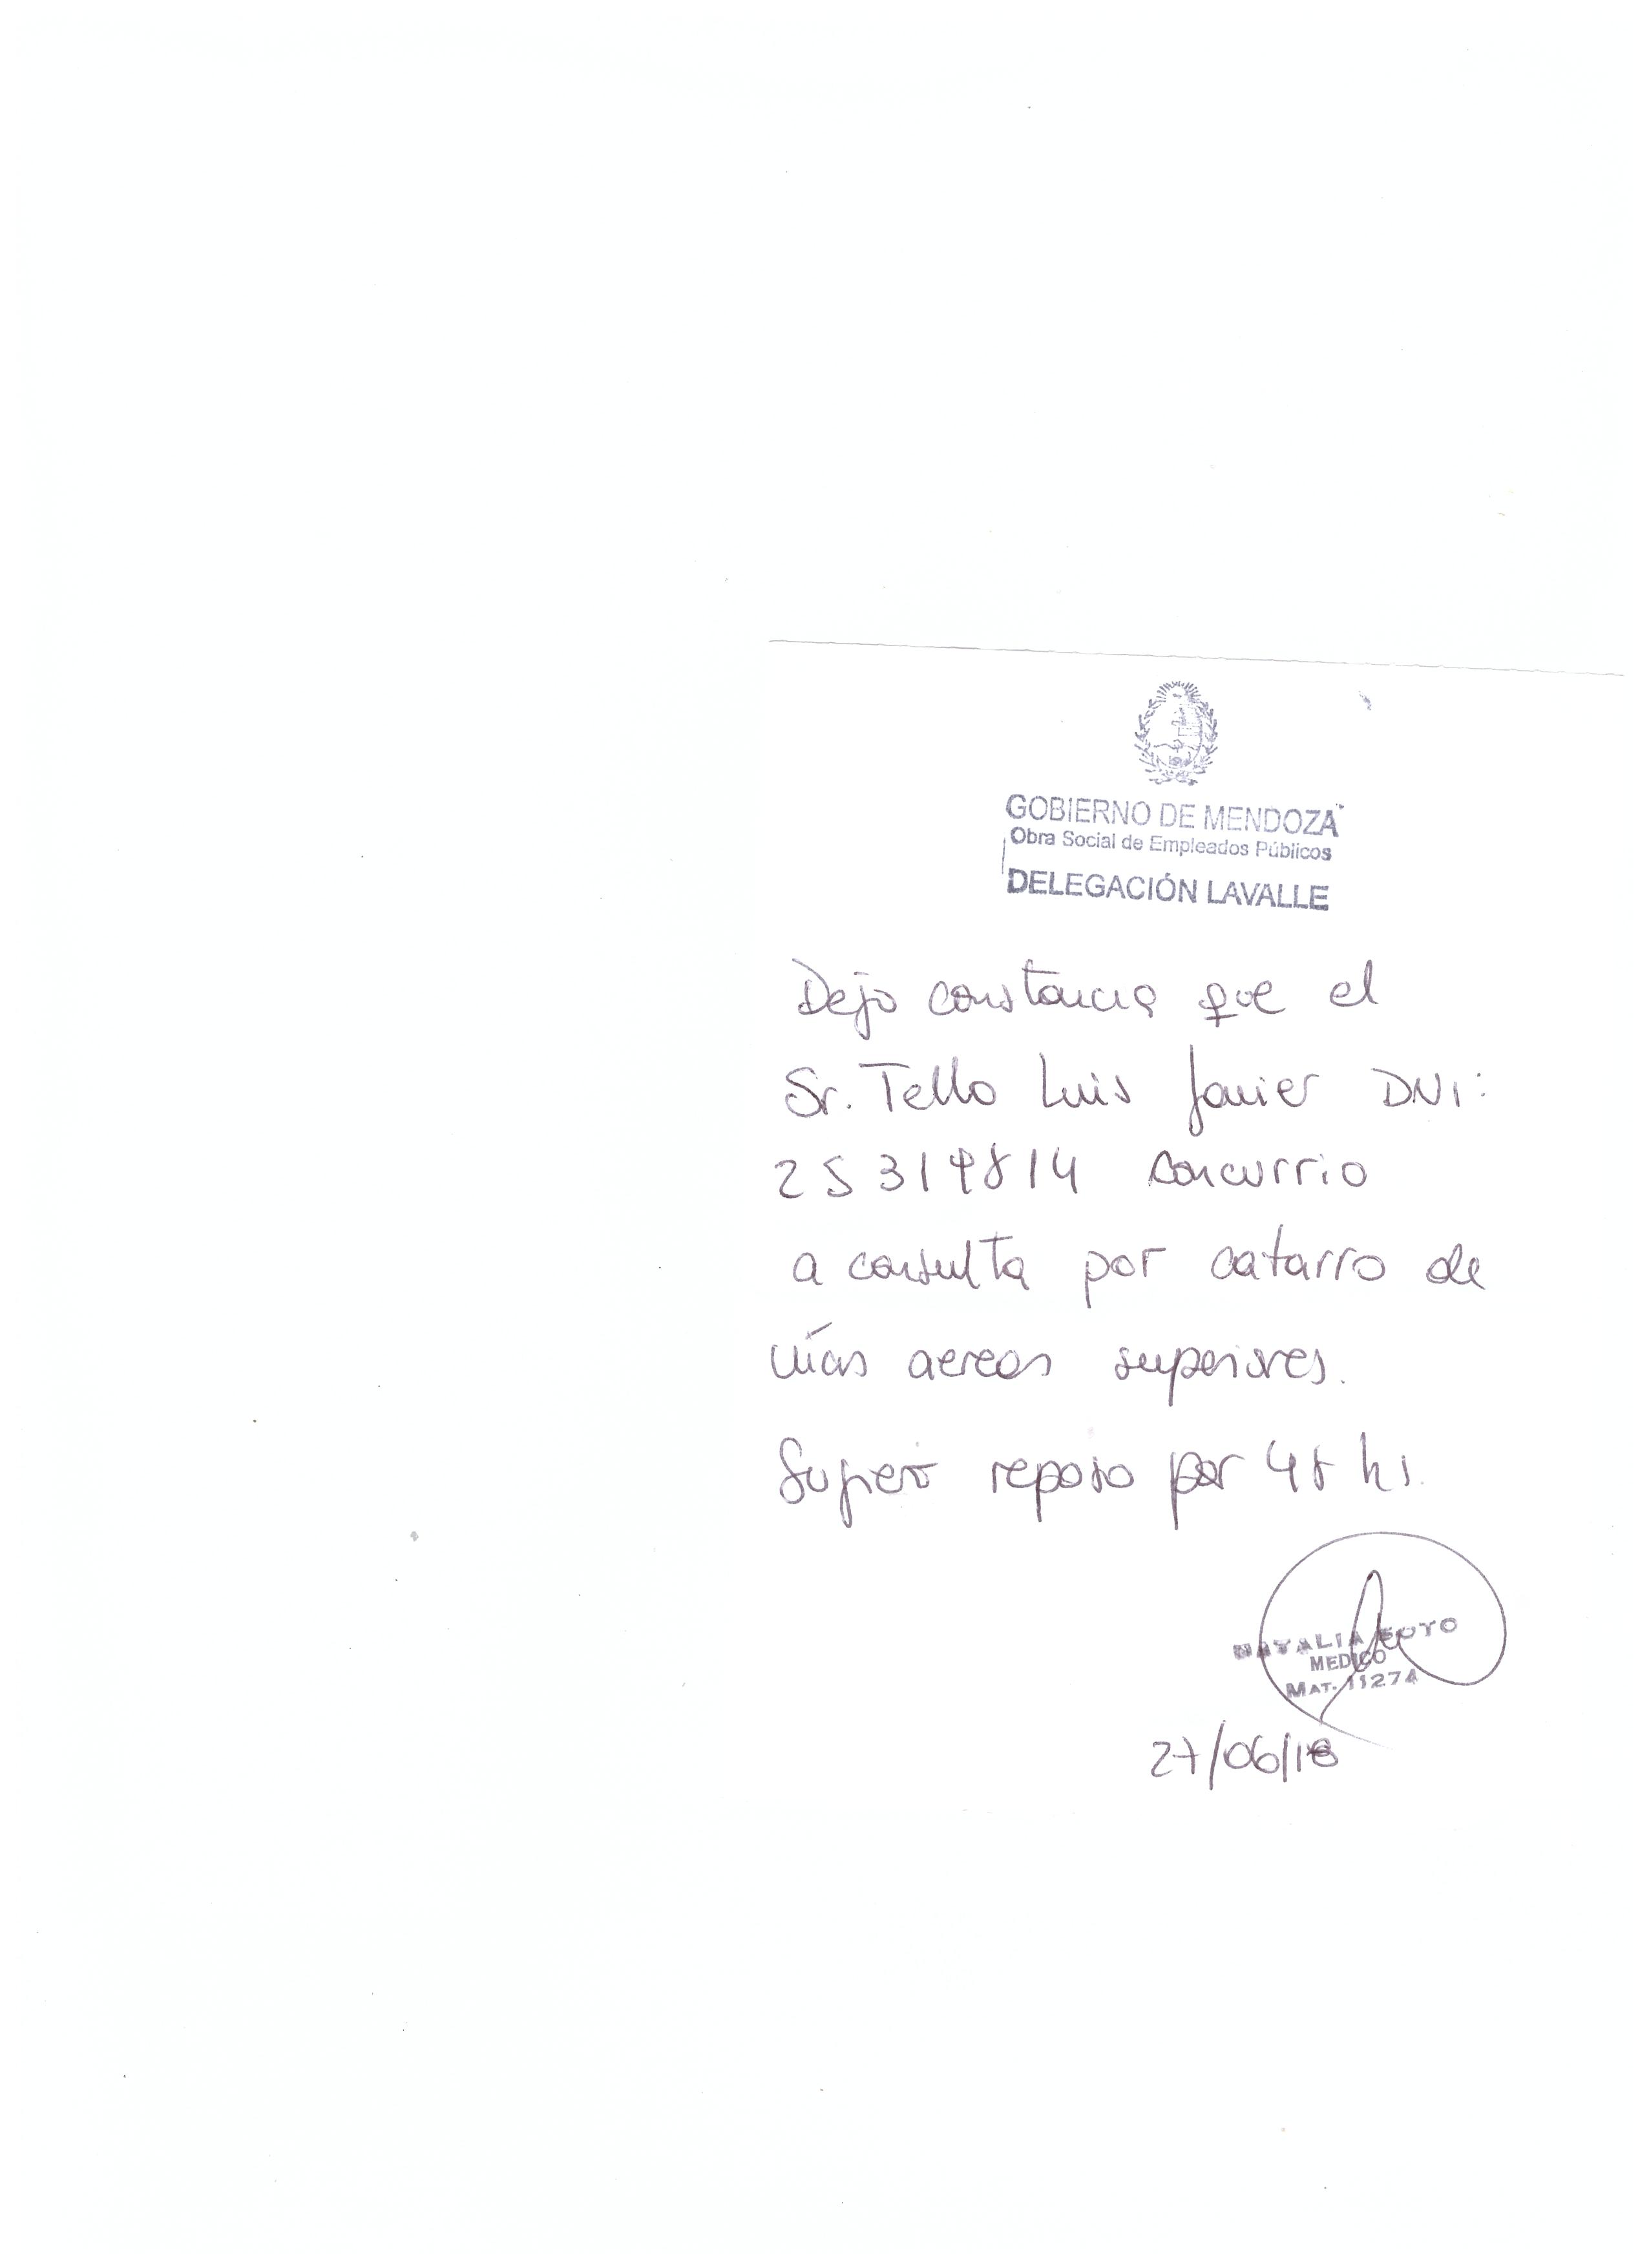 GOBIERNO DE MENDOZA
Obra Social de Empleados Públicos
DELEGACIÓN LAVALLE
Dejo constancia que el
Sr. Tello Luis Javier DNI:
25319814 concurrio
a consulta por catarro de
vías aereas superiores.
Sugiero reposo por 48 hs.
NATALIA
MEDICO
MAT. 11274
27/06/18